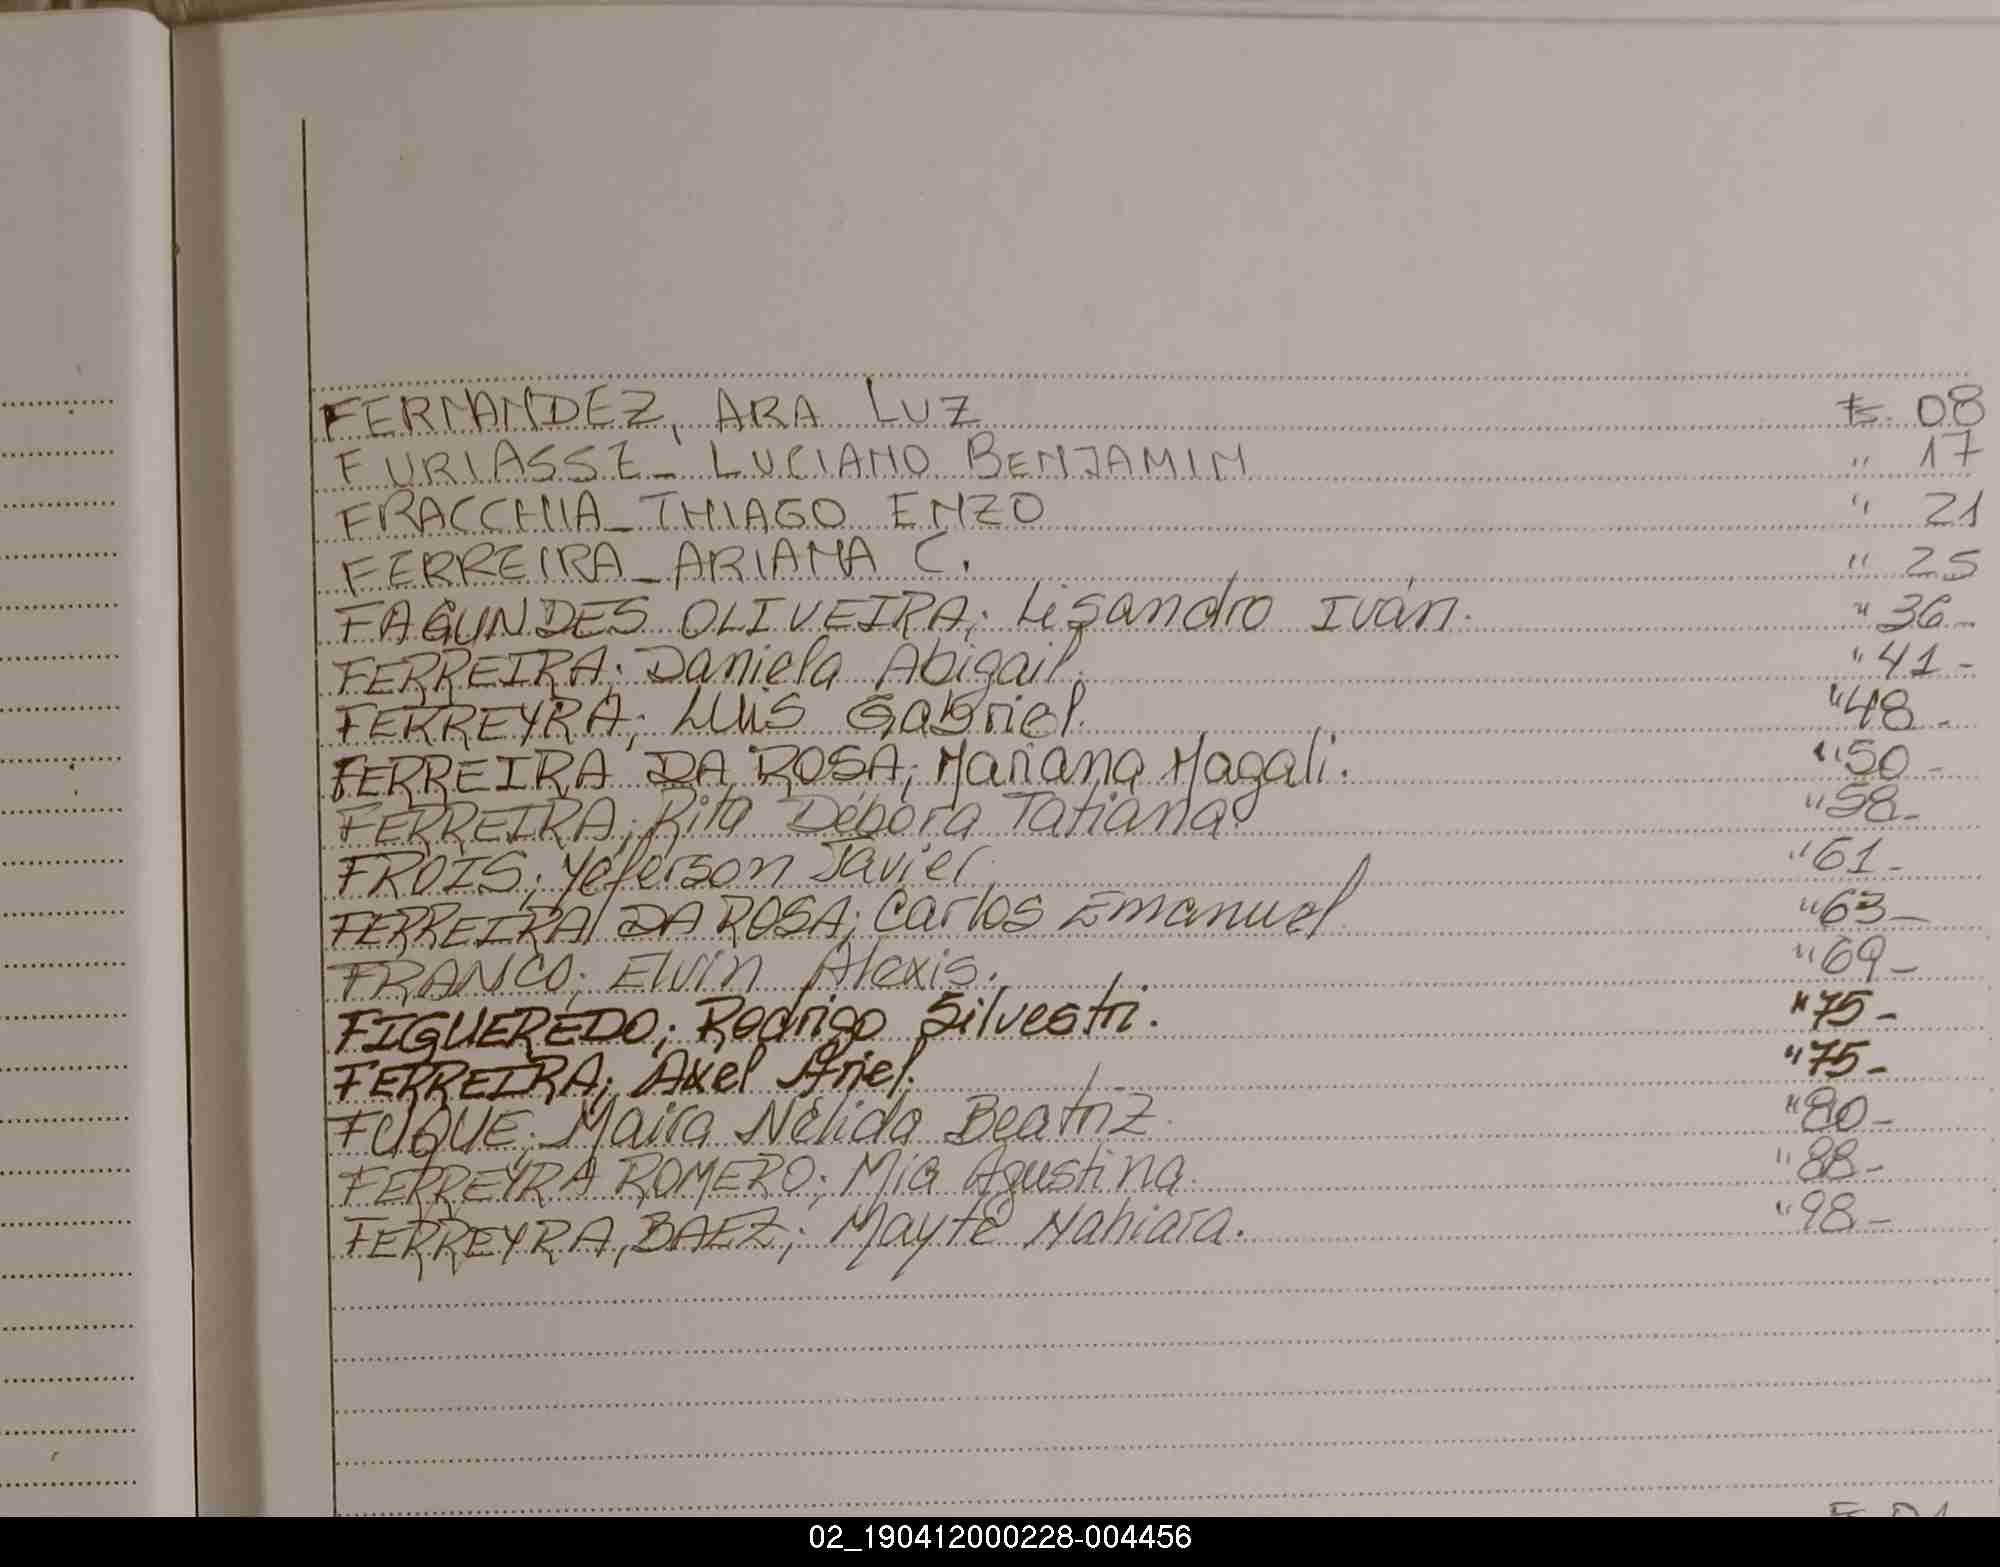 FERNANDEZ, ARA LUZ Fs. 08
FURIASSE_ LUCIANO BENJAMIN " 17
FRACCHIA_ THIAGO ENZO " 21
FERREIRA_ ARIANA C. " 25
FAGUNDES OLIVEIRA; Lisandro Iván. " 36-
FERREIRA; Daniela Abigail. " 41-
FERREYRA; LUIS Gabriel. " 48-
FERREIRA DA ROSA; Mariana Magali. " 50-
FERREIRA; Rita Débora Tatiana. " 58-
FROIS; Yeferson Javier. " 61-
FERREIRA DA ROSA; Carlos Emanuel. " 63-
FRANCO; Elvin Alexis. " 69-
FIGUEREDO; Rodrigo Silvestri. " 75-
FERREIRA; Axel Ariel. " 75-
FUQUE; Maira Nélida Beatriz. " 80-
FERREYRA ROMERO; Mia Agustina. " 88-
FERREYRA, BAEZ; Mayte Nahiara. " 98-
02_190412000228-004456